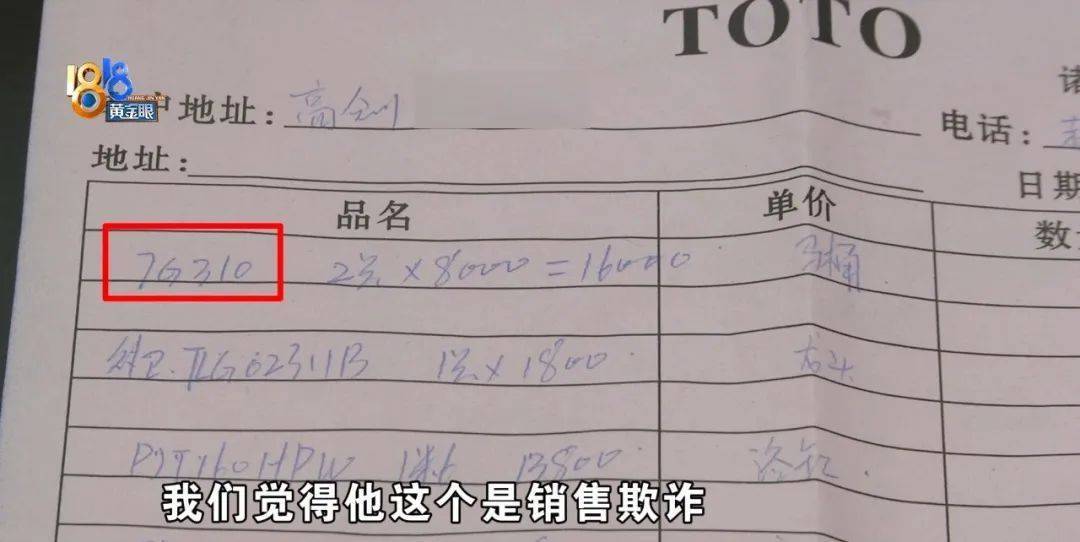 TOTO
1818
黄金眼
户地址：高
诸
电话：
地址：
日期
品名 单价 数
7G310 2套×8000=16000 马桶
TLG02311B 1套×1800 龙头
1 13800 浴缸
我们觉得他这个是销售欺诈